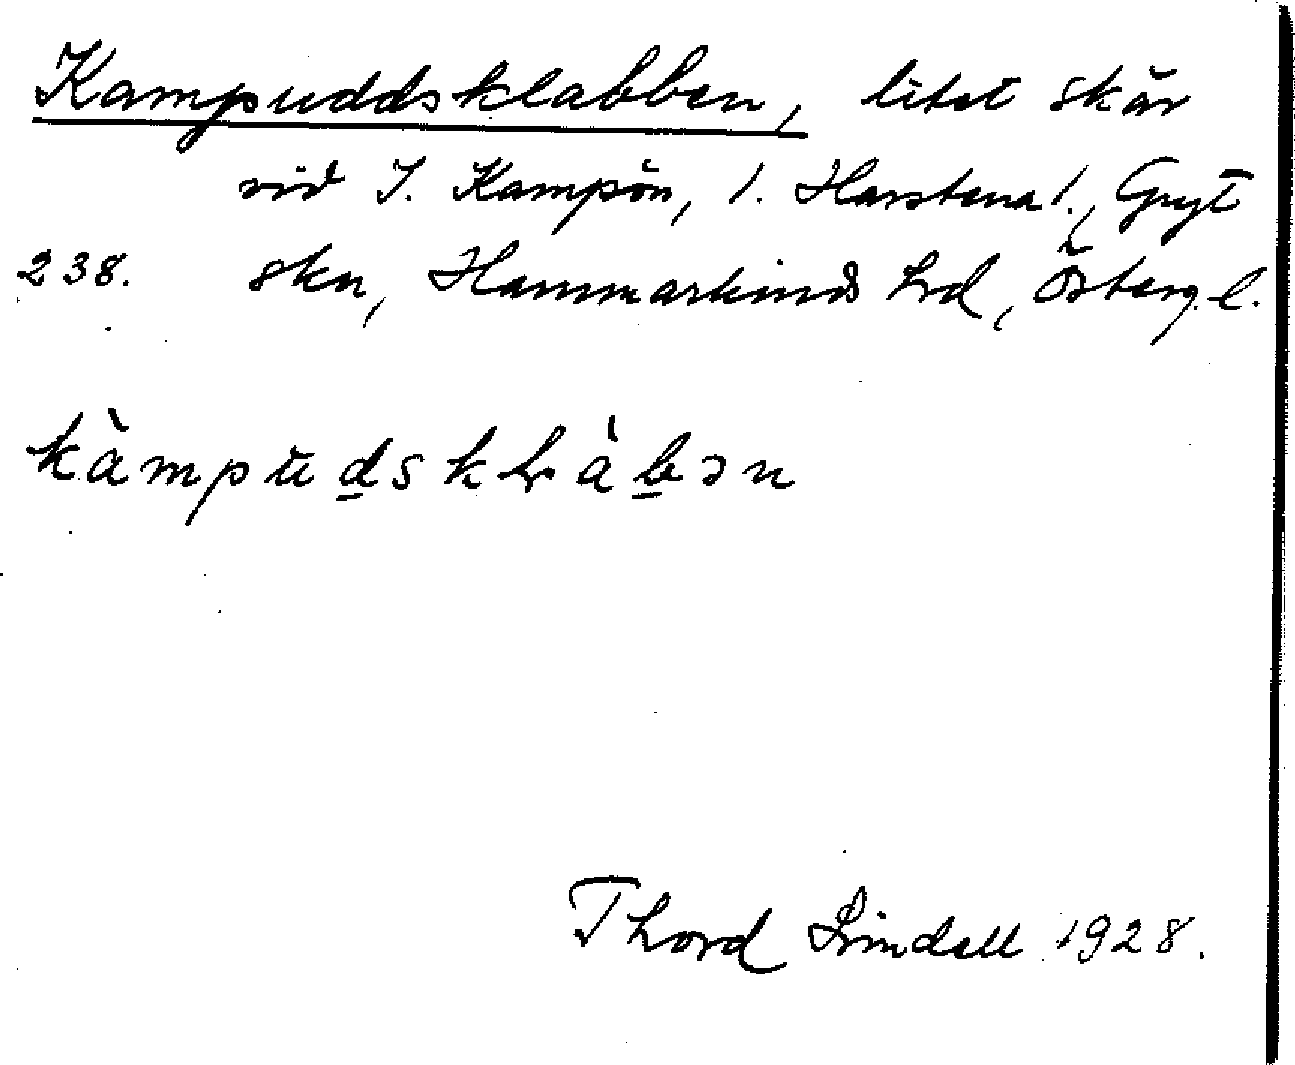 Kampuddsklabben, litet skär
vid I. Kampön, 1. Harstena 1., Gryt
238. skn, Hammarkinds hrd, Österg.l.
kàmpudskɭàbən
Thord Lindell 1928.